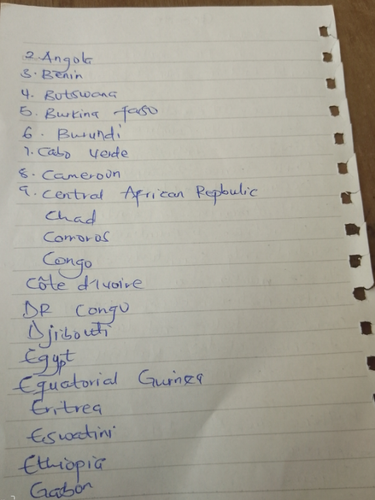 2. Angola
3. Benin
4. Botswana
5. Burkina faso
6. Burundi
7. Cabo verde
8. Cameroun
9. Central African Repbulic
Chad
Comoros
Congo
Côte d'Ivoire
DR Congo
Djibouti
Egypt
Equatorial Guinea
Eritrea
Eswatini
Ethiopia
Gabon